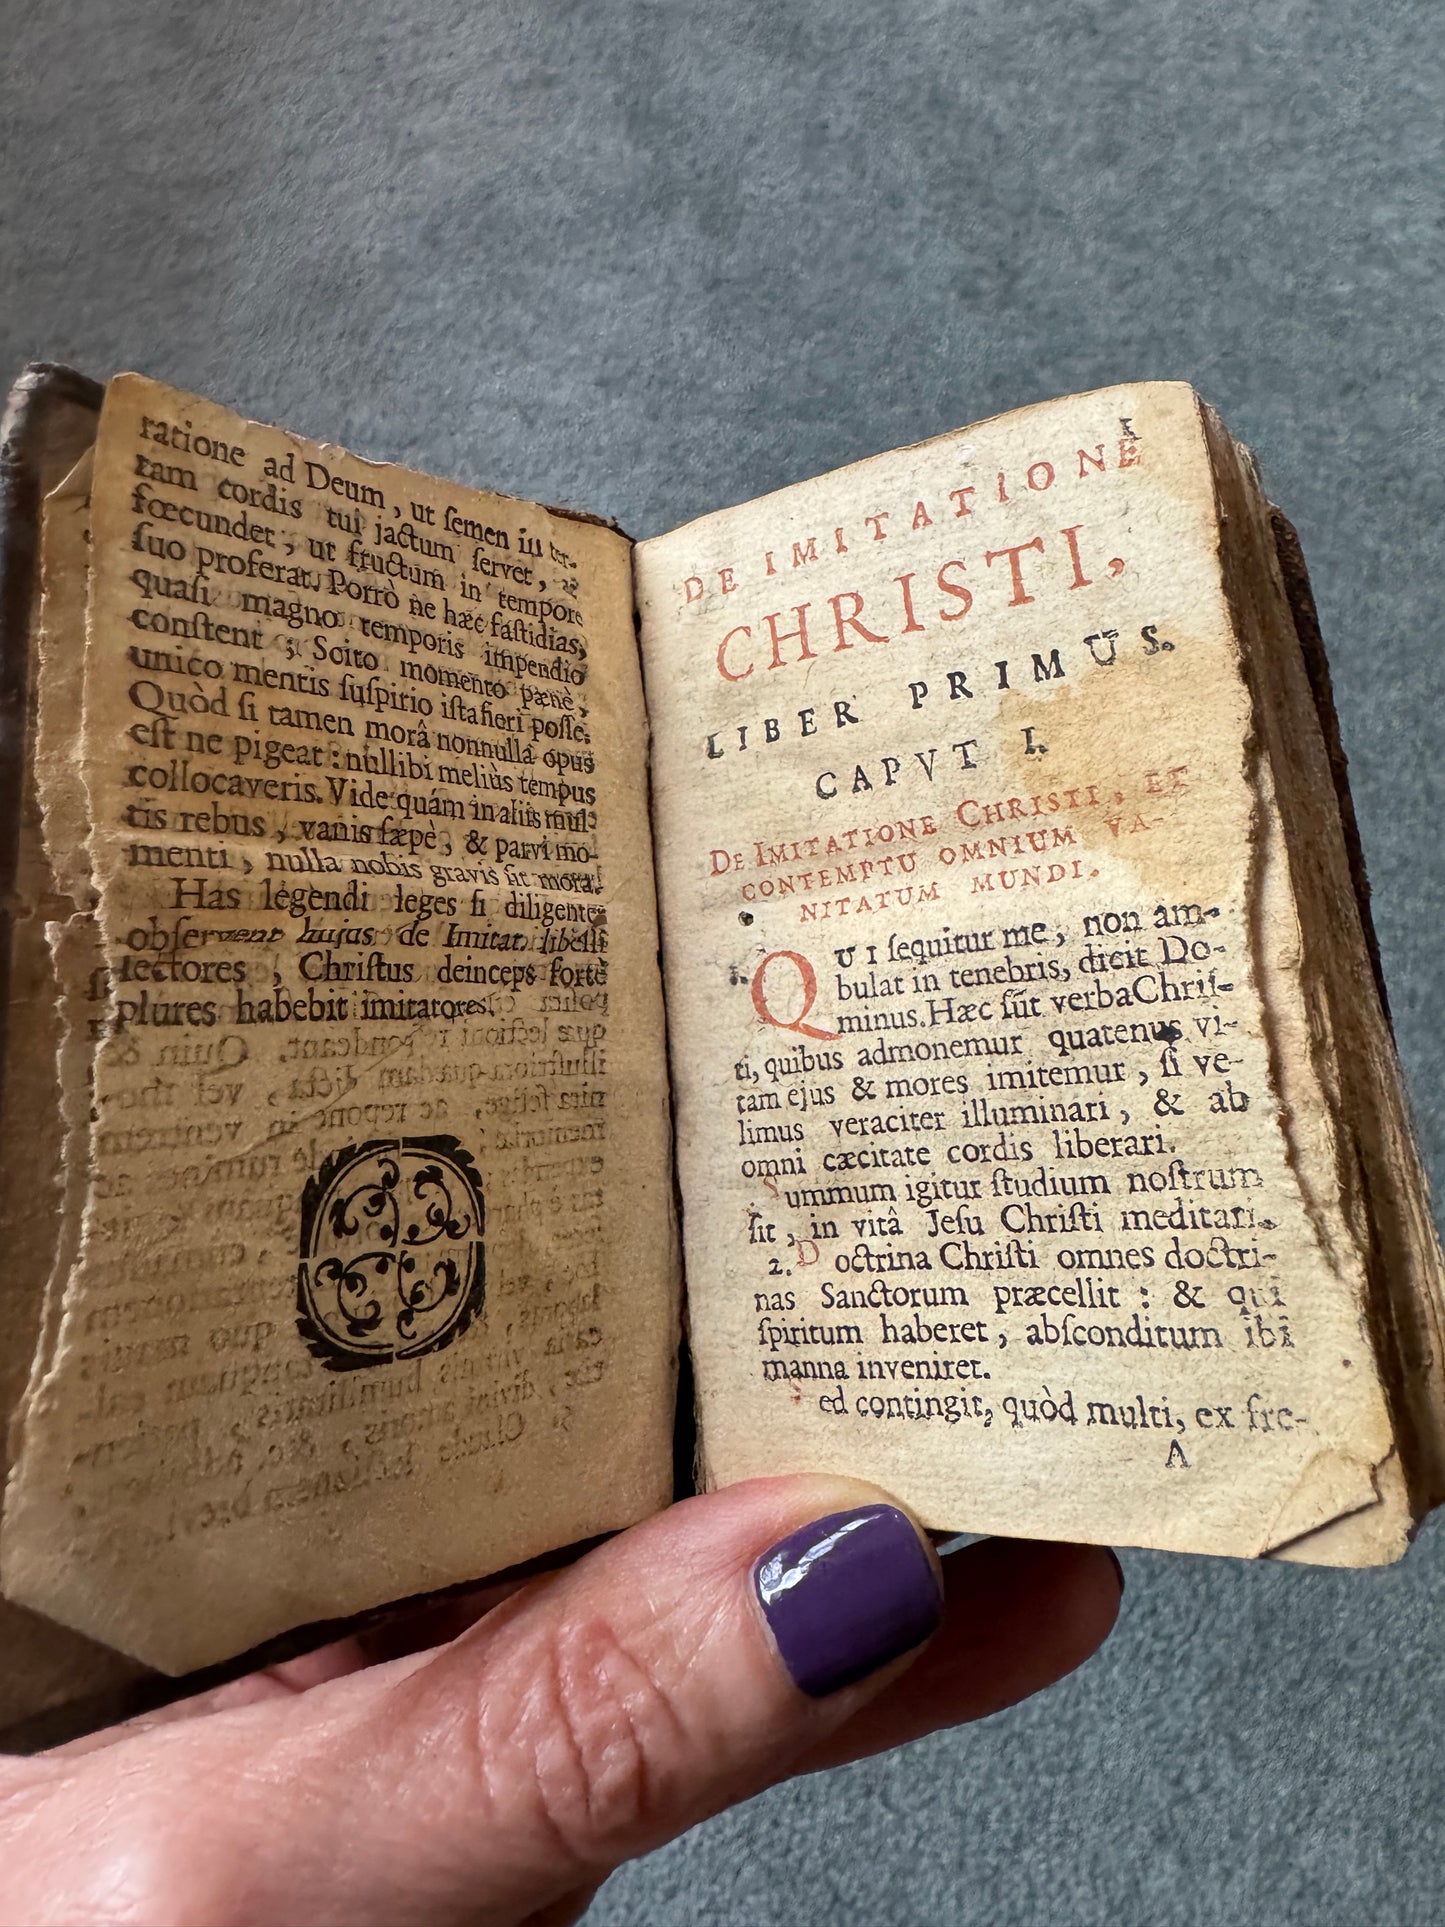 ratione ad Deum, ut ſemen in ter-
ram cordis tui jactum ſervet, &
fœcundet; ut fructum in tempore
ſuo proferat. Porrò ne hæc faſtidias,
quaſi magno temporis impendio
conſtent; Scito momento pænè,
unico mentis ſuſpirio iſta fieri poſſe.
Quòd ſi tamen morâ nonnullâ opus
eſt ne pigeat: nullibi meliùs tempus
collocaveris. Vide quám in aliis mul-
tis rebus, vanis ſæpè, & parvi mo-
menti, nulla nobis gravis ſit mora.
Has legendi leges ſi diligenter
obſervent hujus de Imitat. libelli
lectores, Chriſtus deinceps fortè
plures habebit imitatores.
I
DE IMITATIONE
CHRISTI,
LIBER PRIMUS.
CAPVT I.
DE IMITATIONE CHRISTI, ET
CONTEMPTU OMNIUM VA-
NITATUM MUNDI.
1. QUI ſequitur me, non am-
bulat in tenebris, dicit Do-
minus. Hæc ſũt verba Chriſ-
ti, quibus admonemur quatenus vi-
tam ejus & mores imitemur, ſi ve-
limus veraciter illuminari, & ab
omni cæcitate cordis liberari.
Summum igitur ſtudium noſtrum
ſit, in vitâ Jeſu Chriſti meditari.
2. Doctrina Chriſti omnes doctri-
nas Sanctorum præcellit: & qui
ſpiritum haberet, abſconditum ibi
manna inveniret.
Sed contingit, quòd multi, ex fre-
A